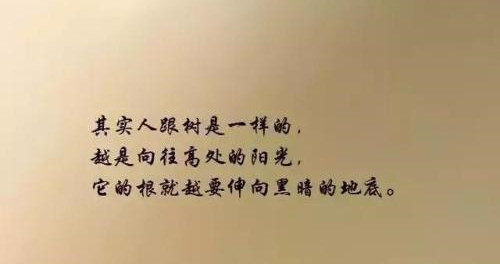 其实人跟树是一样的，
越是向往高处的阳光，
它的根就越要伸向黑暗的地底。